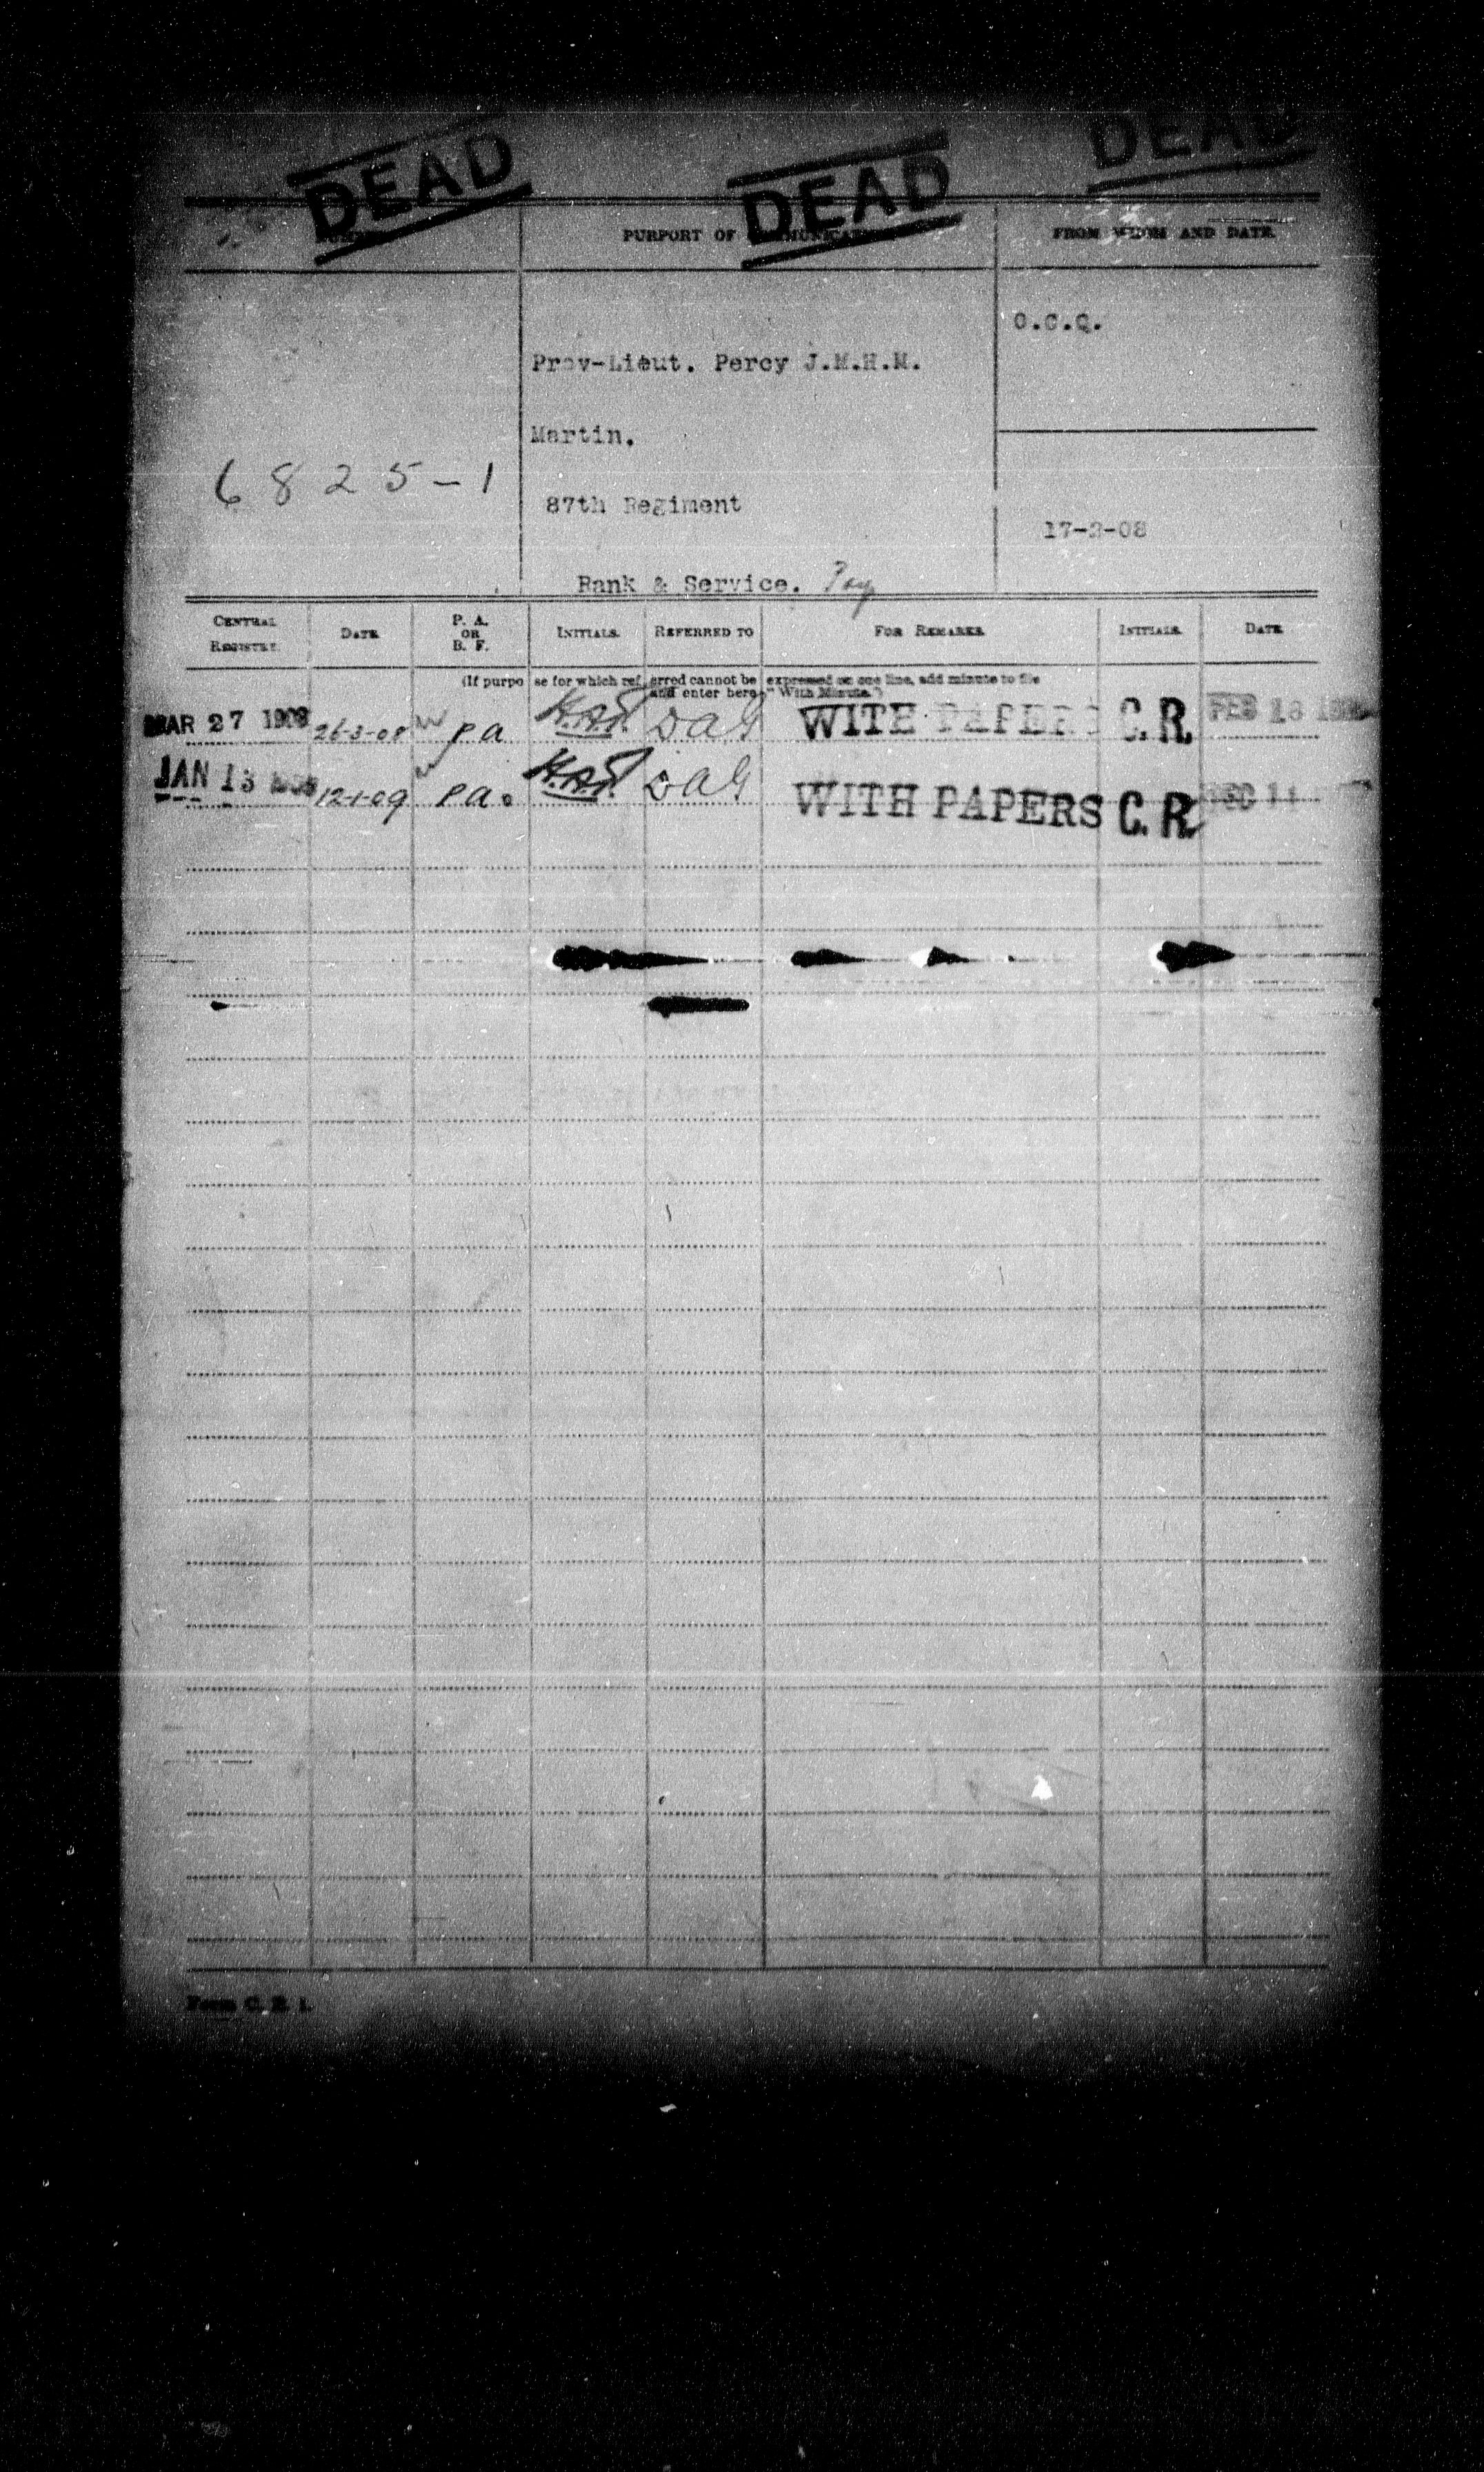 DEAD DEAD DEAD
PURPORT OF COMMUNICATION FROM WHOM AND DATE
O.C.Q.
Prov-Lieut. Percy J.M.H.M.
Martin.
6825-1
87th Regiment
17-2-08
Rank & Service. Pay
CENTRAL REGISTRY. DATE P. A. OR B. F. INITIALS. REFERRED TO FOR REMARKS. INITIALS. DATE
(If purpose for which referred cannot be expressed on one line, add minute to file
and enter here "With Minute.")
MAR 27 1908 26-3-08 pa DAG WITH PAPERS C.R. FEB 18
JAN 13 12-1-09 Pa. DAG WITH PAPERS C.R. DEC 11
Form C. R. 1.